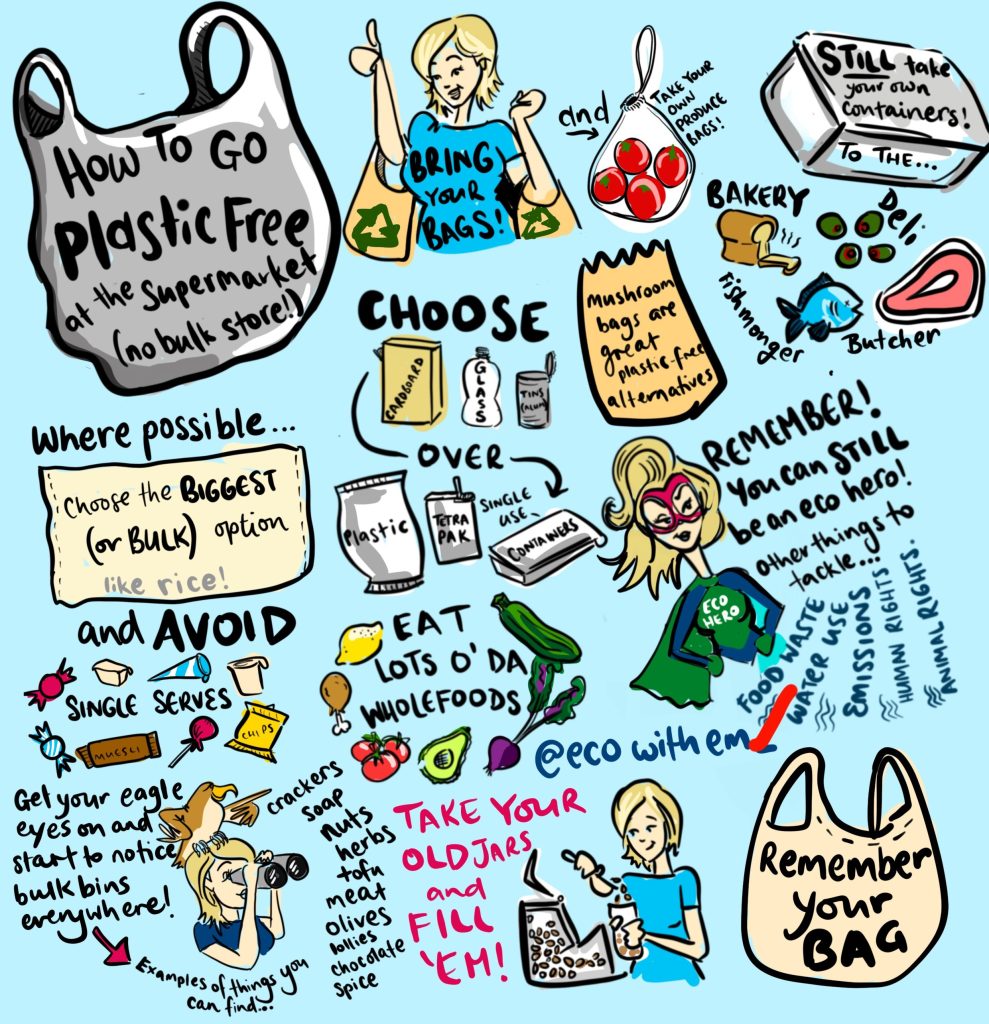 HOW TO GO
Plastic Free
at the supermarket
(no bulk store!)
BRING
your
BAGS!
and
TAKE YOUR
OWN
PRODUCE
BAGS!
STILL take
your own
containers!
TO THE...
BAKERY
Deli
Fishmonger
Butcher
CHOOSE
CARDBOARD
GLASS
TINS
(ALUM)
OVER
Plastic
TETRA
PAK
SINGLE
USE
CONTAINERS
Mushroom
bags are
great
plastic-free
alternatives
Where possible...
Choose the BIGGEST
(or BULK) option
like rice!
and AVOID
SINGLE SERVES
MUESLI
CHIPS
EAT
LOTS O' DA
WHOLEFOODS
REMEMBER!
You can STILL
be an eco hero!
other things to
tackle...
ECO
HERO
FOOD WASTE
WATER USE
EMISSIONS
HUMAN RIGHTS
ANIMAL RIGHTS.
@eco with em
Get your eagle
eyes on and
start to notice
bulk bins
everywhere!
Examples of things you
can find...
crackers
soap
nuts
herbs
tofu
meat
olives
lollies
chocolate
spice
TAKE YOUR
OLD JARS
and
FILL
'EM!
Remember
your
BAG